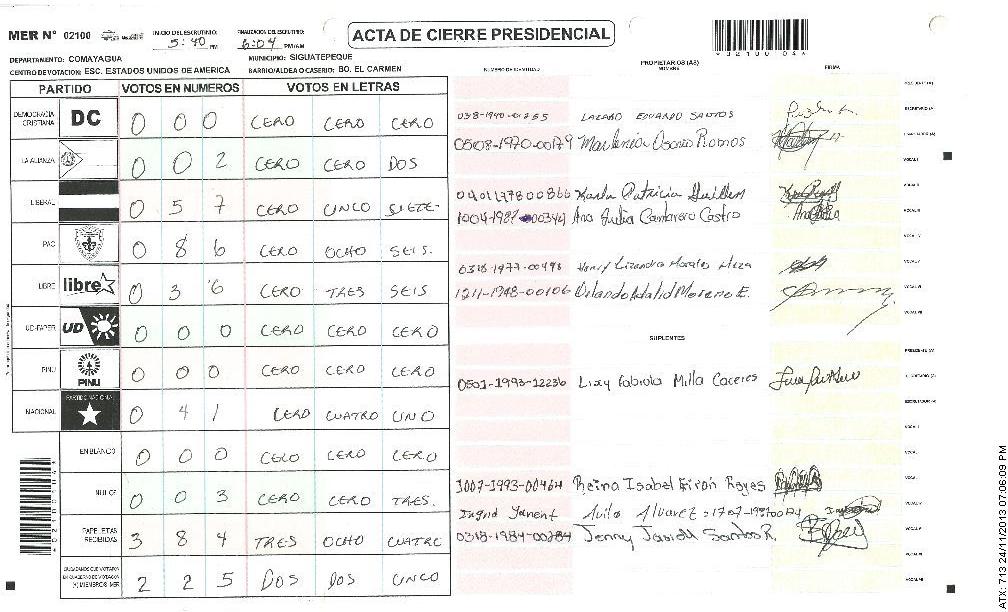 MER N° 02100
INICIO DEL ESCRUTINIO: 5:40 PM
FINALIZACION DEL ESCRUTINIO: 6:04 PM/AM
ACTA DE CIERRE PRESIDENCIAL
DEPARTAMENTO: COMAYAGUA
MUNICIPIO: SIGUATEPEQUE
CENTRO DE VOTACION: ESC. ESTADOS UNIDOS DE AMERICA
BARRIO/ALDEA O CASERIO: BO. EL CARMEN
NUMERO DE IDENTIDAD
PROPIETARIOS (AS)
NOMBRE
FIRMA
PARTIDO VOTOS EN NUMEROS VOTOS EN LETRAS
DEMOCRACIA CRISTIANA DC 0 0 0 CERO CERO CERO
LA ALIANZA 0 0 2 CERO CERO DOS
LIBERAL 0 5 7 CERO CINCO SIETE
PAC 0 8 6 CERO OCHO SEIS.
LIBRE libre 0 3 6 CERO TRES SEIS
UD-FAPER UD 0 0 0 CERO CERO CERO
PINU PINU 0 0 0 CERO CERO CERO
NACIONAL PARTIDO NACIONAL 0 4 1 CERO CUATRO UNO
EN BLANCO 0 0 0 CERO CERO CERO
NULOS 0 0 3 CERO CERO TRES.
PAPELETAS RECIBIDAS 3 8 4 TRES OCHO CUATRO
CIUDADANOS QUE VOTARON EN CUADERNO DE VOTACION (+) MIEMBROS MER 2 2 5 DOS DOS CINCO
LAZARO EDUARDO SANTOS
0508-1970-00179 Marlenia Osorio Romos
Karla Patricia Guillen
Ana Julia Cantarero Castro
0318-1977-00498 Henry Lizandro Morales Meza
1211-1948-00106 Orlando Adalid Moreno E.
SUPLENTES
0501-1993-12236 Lixy Fabiola Milla Caceres
1007-1993-00464 Reina Isabel Giron Reyes
Ingrid Yanent Avila Alvarez
0318-1984-00284 Jenny Jasiell Santos R.
ATX: 713 24/11/2013 07:06:09 PM